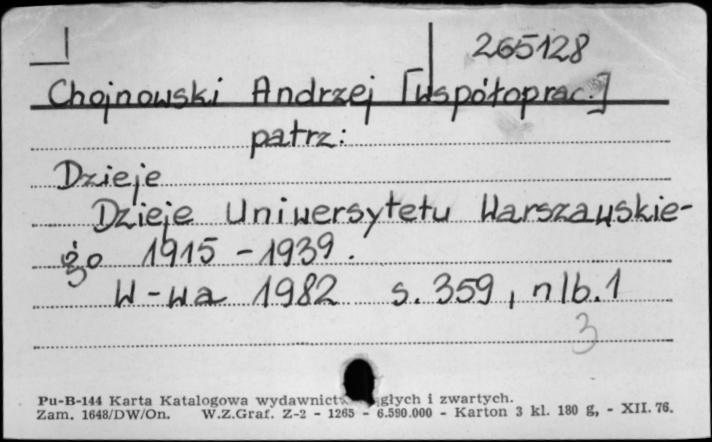 265128
Chojnowski Andrzej [współoprac.]
patrz:
Dzieje
Dzieje Uniwersytetu Warszawskie-
go 1915 - 1939.
W-wa 1982 s. 359, nlb. 1
3
Pu-B-144 Karta Katalogowa głych i zwartych.
Zam. 1648/DW/On. W.Z.Graf. Z-2 - 1265 - 6.590.000 - Karton 3 kl. 180 g, - XII. 76.